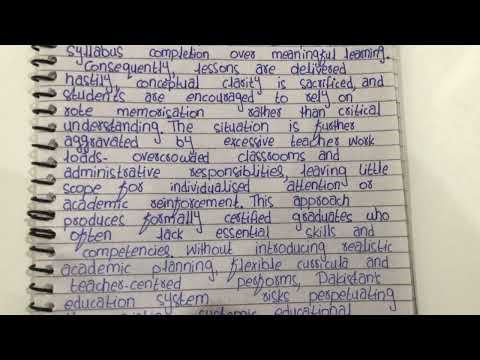 syllabus completion over meaningful learning.
Consequently, lessons are delivered
hastily, conceptual clarity is sacrificed, and
students are encouraged to rely on
rote memorisation rather than critical
understanding. The situation is further
aggravated by excessive teacher work
loads- overcrowded classrooms and
administrative responsiblities, leaving little
scope for individualised attention or
academic reinforcement. This approach
produces formally certified graduates who
often lack essential skills and
competencies. Without introducing realistic
academic planning, flexible curricula and
teacher-centred performs, Pakistan's
education system risks perpetuating
systemic educational